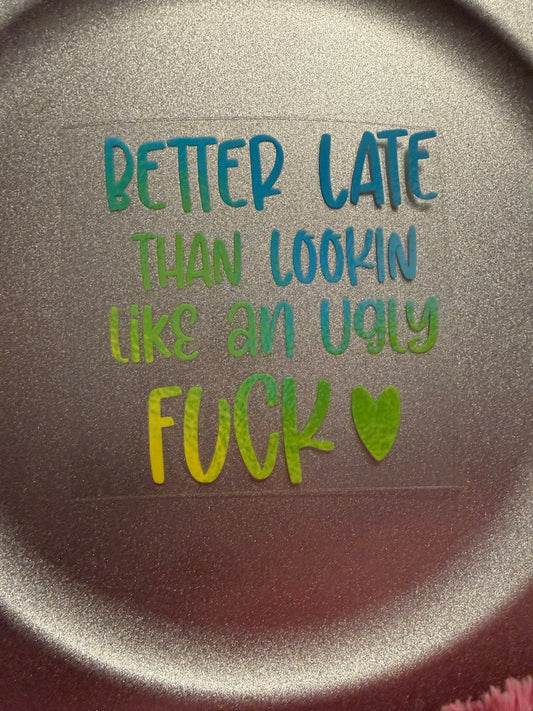 BETTER LATE
THAN LOOKIN
LIKE an UgLy
FUCK